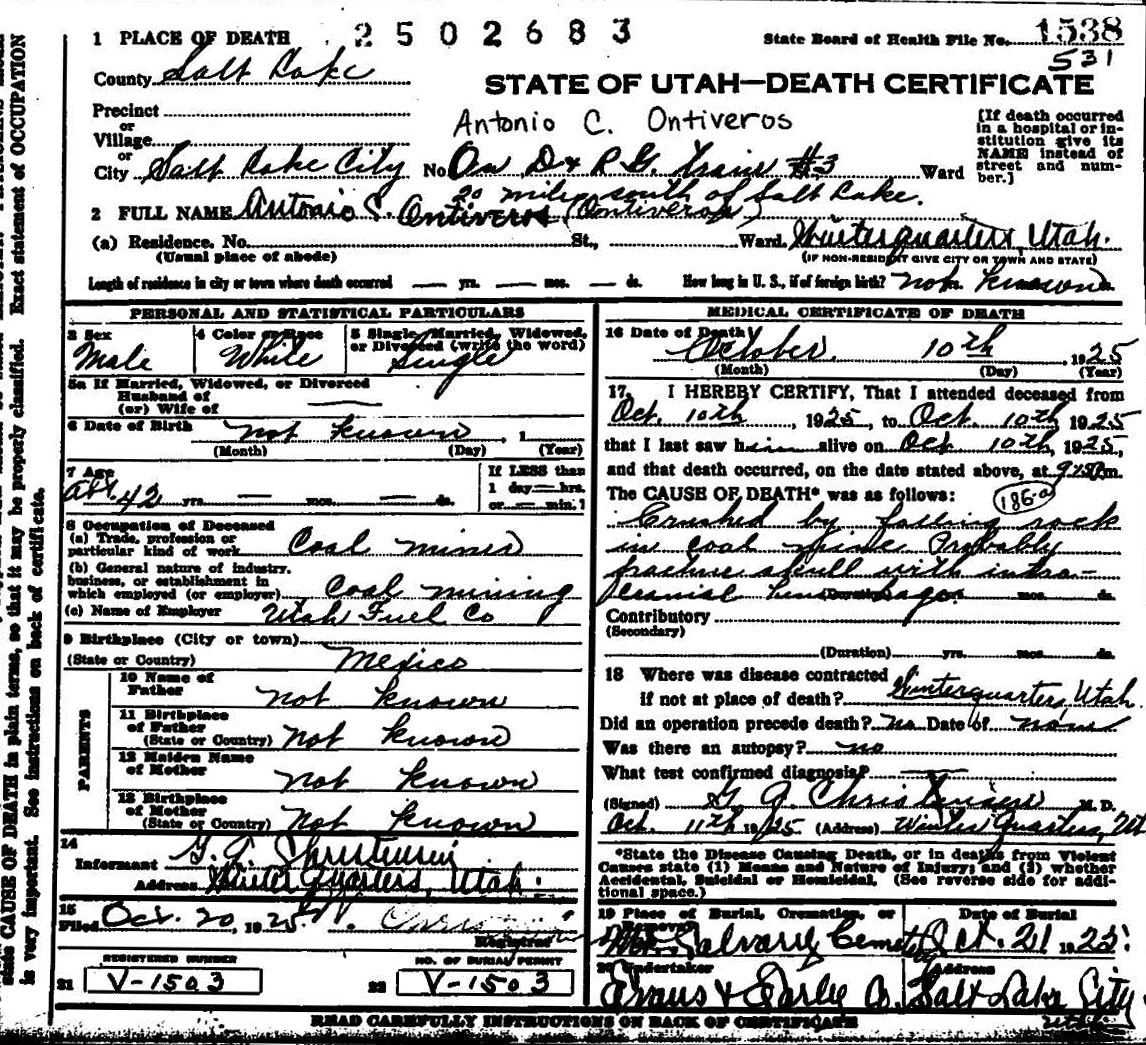 1 PLACE OF DEATH 2502683 State Board of Health File No. 1538
531
County Salt Lake
STATE OF UTAH—DEATH CERTIFICATE
Precinct
or
Village
Antonio C. Ontiveros
[If death occurred in a hospital or institution give its NAME instead of street and number.]
or
City Salt Lake City No. On D & R G. Train #3 Ward
20 miles south of Salt Lake.
2 FULL NAME Antonio C. Ontiveros (Ontiveros)
(a) Residence. No. St., Ward. Winterquarters, Utah.
(Usual place of abode) (IF NON-RESIDENT GIVE CITY OR TOWN AND STATE)
Length of residence in city or town where death occurred — yrs. — mos. — ds. How long in U. S., if of foreign birth? not known
PERSONAL AND STATISTICAL PARTICULARS
3 Sex Male
4 Color or Race White
5 Single, Married, Widowed, or Divorced (write the word) Single
5a If Married, Widowed, or Divorced
Husband of
(or) Wife of —
6 Date of Birth not known, 1
(Month) (Day) (Year)
7 Age
Abt. 42 yrs. — mos. — ds.
If LESS than
1 day — hrs.
or — min.
8 Occupation of Deceased
(a) Trade, profession or
particular kind of work Coal miner
(b) General nature of industry,
business, or establishment in
which employed (or employer) Coal mining
(c) Name of Employer Utah Fuel Co
9 Birthplace (City or town)
(State or Country) Mexico
PARENTS
10 Name of
Father not known
11 Birthplace
of Father
(State or Country) not known
12 Maiden Name
of Mother not known
13 Birthplace
of Mother
(State or Country) not known
14
Informant G. A. Christensen
Address Winter Quarters, Utah.
15
Filed Oct. 20, 1925
Registrar
REGISTERED NUMBER
21 V-1503
NO. OF BURIAL PERMIT
22 V-1503
MEDICAL CERTIFICATE OF DEATH
16 Date of Death
October 10th 1925
(Month) (Day) (Year)
17. I HEREBY CERTIFY, That I attended deceased from
Oct. 10th, 1925, to Oct. 10th, 1925
that I last saw him alive on Oct 10th, 1925,
and that death occurred, on the date stated above, at m.
The CAUSE OF DEATH* was as follows: 186-a
Crushed by falling rock
in coal mine Probably
fracture skull with intra-
cranial
(Duration) yrs. mos. ds.
Contributory
(Secondary)
(Duration) yrs. mos. ds.
18 Where was disease contracted
if not at place of death? Winterquarters, Utah
Did an operation precede death? no Date of none
Was there an autopsy? no
What test confirmed diagnosis? —
(Signed) G. A. Christensen M. D.
Oct. 11th 1925 (Address) Winter Quarters, Ut
*State the Disease Causing Death, or in deaths from Violent
Causes state (1) Means and Nature of Injury; and (2) whether
Accidental, Suicidal or Homicidal. (See reverse side for addi-
tional space.)
19 Place of Burial, Cremation, or Removal
Mt. Calvary Cemetery
Date of Burial
Oct. 21 1925
20 Undertaker
Evans & Early Co.
Address
Salt Lake City
Utah
READ CAREFULLY INSTRUCTIONS ON BACK OF CERTIFICATE
state CAUSE OF DEATH in plain terms, so that it may be properly classified. Exact statement of OCCUPATION
is very important. See instructions on back of certificate.